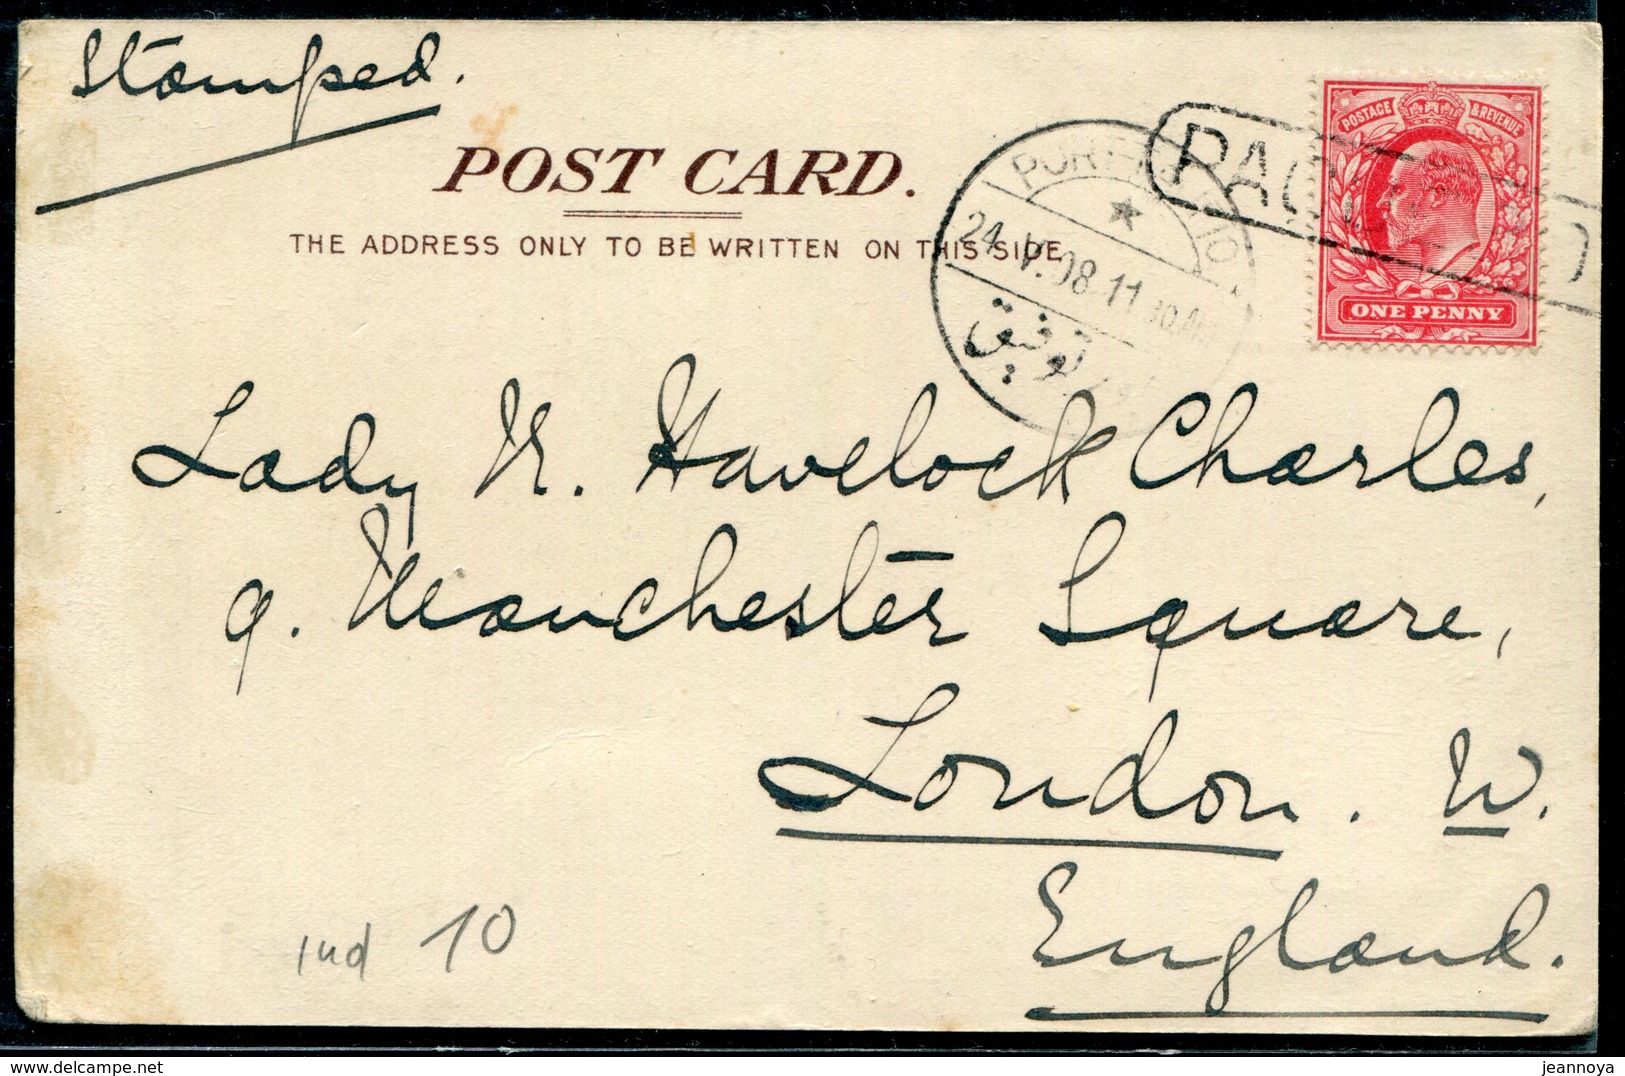 Stamped.
POST CARD.
THE ADDRESS ONLY TO BE WRITTEN ON THIS SIDE
POSTAGE & REVENUE
ONE PENNY
24.V.08.11 30 AM
بور توفيق
Lady N. Havelock Charles,
9. Manchester Square,
London. W.
England.
ind 10
delcampe.net
jeannoya